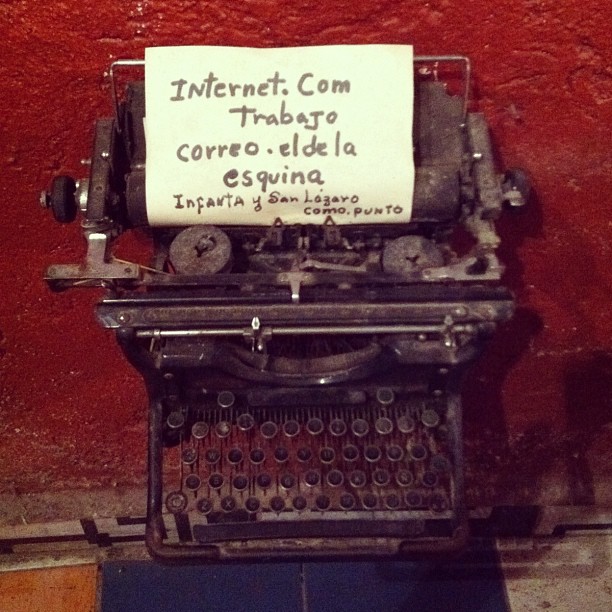 Internet. Com
Trabajo
correo. el de la
esquina
Infanta y San Lázaro
como. punto